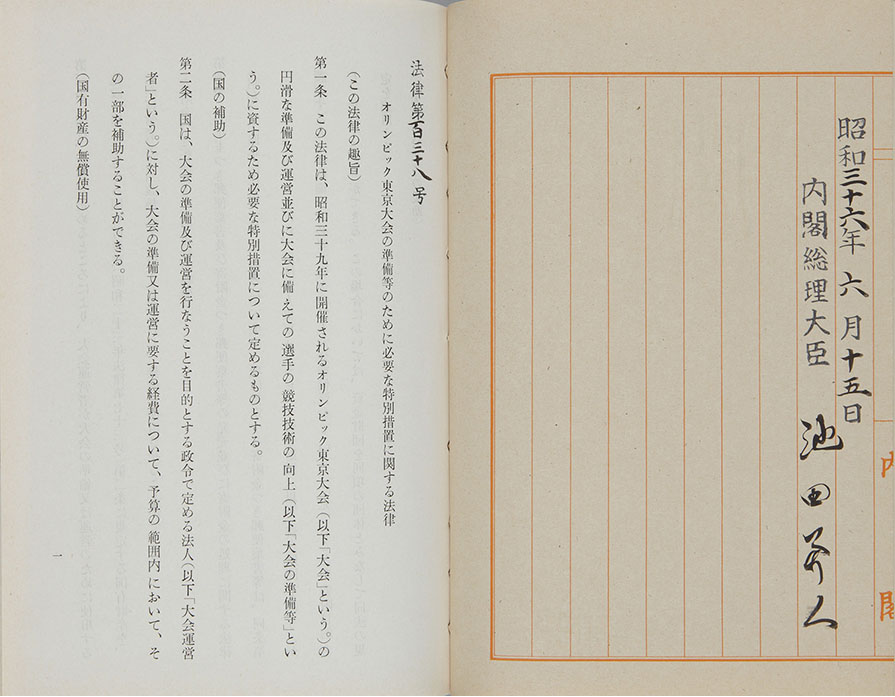 昭和三十六年六月十五日
内閣総理大臣　池田勇人
内閣
法律第百三十八号
オリンピック東京大会の準備等のために必要な特別措置に関する法律
（この法律の趣旨）
第一条　この法律は、昭和三十九年に開催されるオリンピック東京大会（以下「大会」という。）の
円滑な準備及び運営並びに大会に備えての選手の競技技術の向上（以下「大会の準備等」とい
う。）に資するため必要な特別措置について定めるものとする。
（国の補助）
第二条　国は、大会の準備及び運営を行なうことを目的とする政令で定める法人（以下「大会運営
者」という。）に対し、大会の準備又は運営に要する経費について、予算の範囲内において、そ
の一部を補助することができる。
（国有財産の無償使用）
一